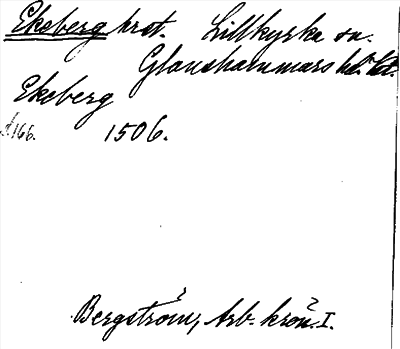 Ekeberg hrst. Lillkyrka sn.
Glanshammars hd. 
Ekeberg
d. 166. 1506.
Bergström, Arb. krön. I.